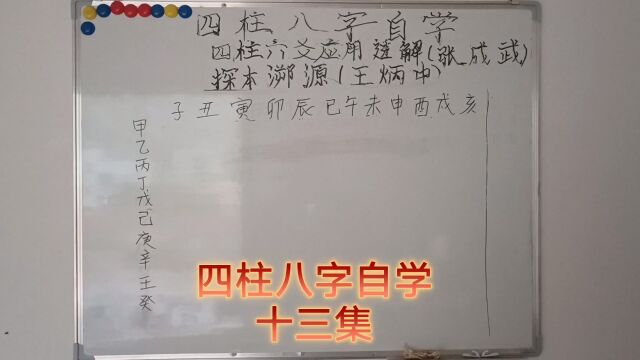 四柱八字自学
四柱六爻应用题解(张成武)
探本溯源(王炳中)
子丑寅卯辰巳午未申酉戌亥
甲乙丙丁戊己庚辛壬癸
四柱八字自学
十三集